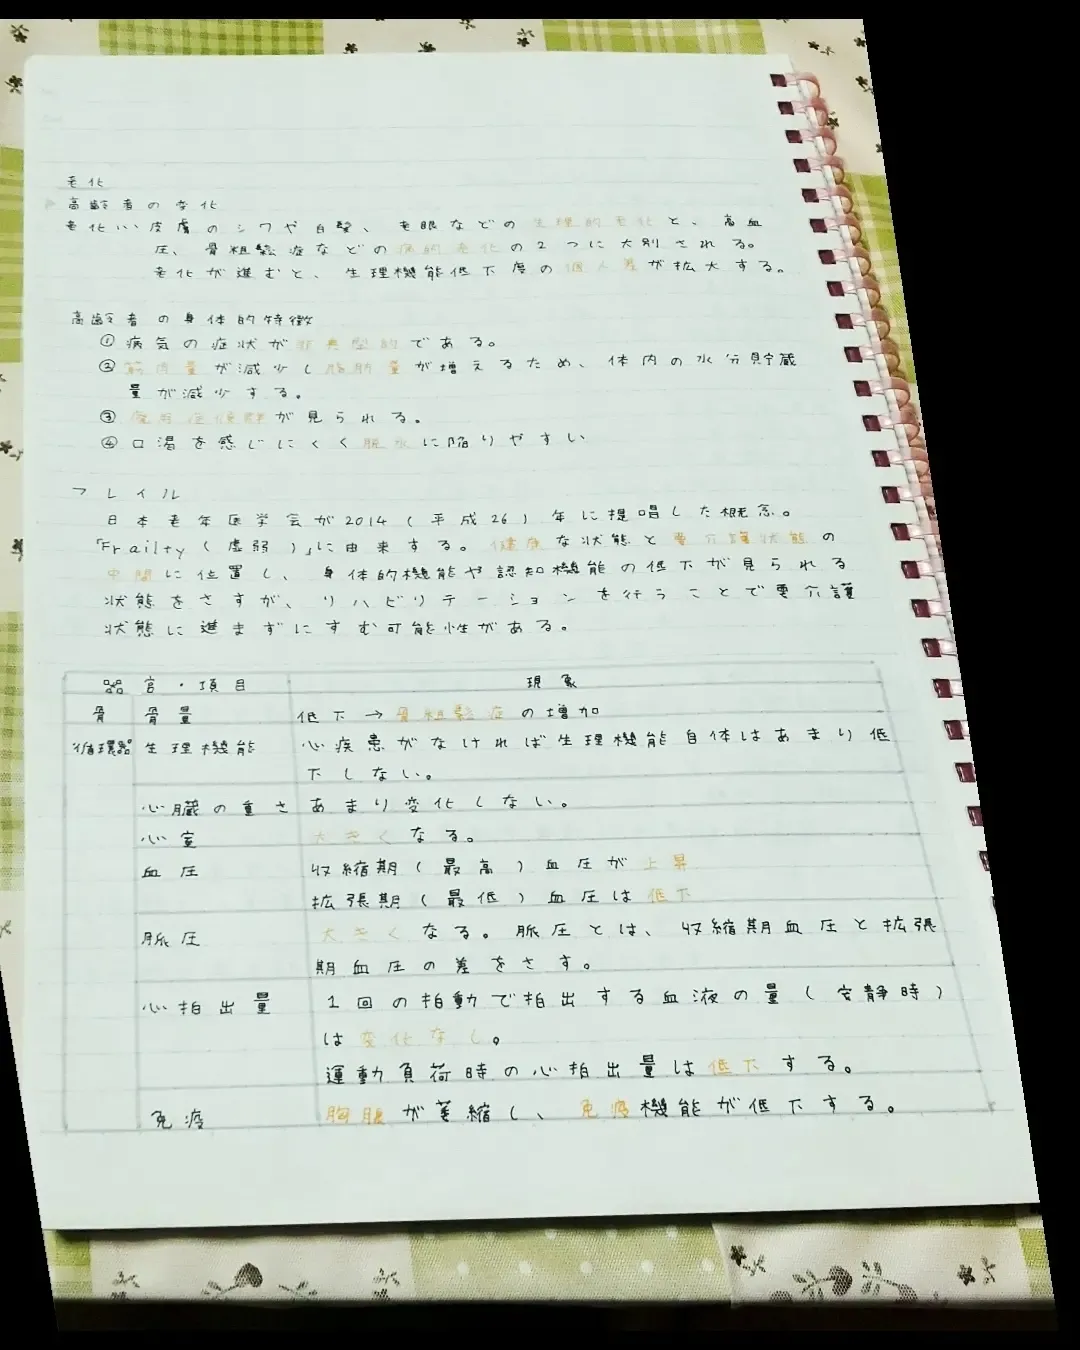 老化
高齢者の変化
老化…皮膚のシワや白髪、老眼などの生理的老化と、高血
圧、骨粗鬆症などの病的老化の2つに大別される。
老化が進むと、生理機能低下度の個人差が拡大する。
高齢者の身体的特徴
① 病気の症状が非典型的である。
② 筋肉量が減少し脂肪量が増えるため、体内の水分貯蔵
量が減少する。
③ 廃用症候群が見られる。
④ 口渇を感じにくく脱水に陥りやすい
フレイル
日本老年医学会が2014(平成26)年に提唱した概念。
「Frailty(虚弱)」に由来する。健康な状態と要介護状態の
中間に位置し、身体的機能や認知機能の低下が見られる
状態をさすが、リハビリテーションを行うことで要介護
状態に進まずにすむ可能性がある。
器官・項目 現象
骨 骨量 低下→骨粗鬆症の増加
循環器 生理機能 心疾患がなければ生理機能自体はあまり低
下しない。
心臓の重さ あまり変化しない。
心室 大きくなる。
血圧 収縮期(最高)血圧が上昇
拡張期(最低)血圧は低下
脈圧 大きくなる。脈圧とは、収縮期血圧と拡張
期血圧の差をさす。
心拍出量 1回の拍動で拍出する血液の量(安静時)
は変化なし。
運動負荷時の心拍出量は低下する。
免疫 胸腺が萎縮し、免疫機能が低下する。